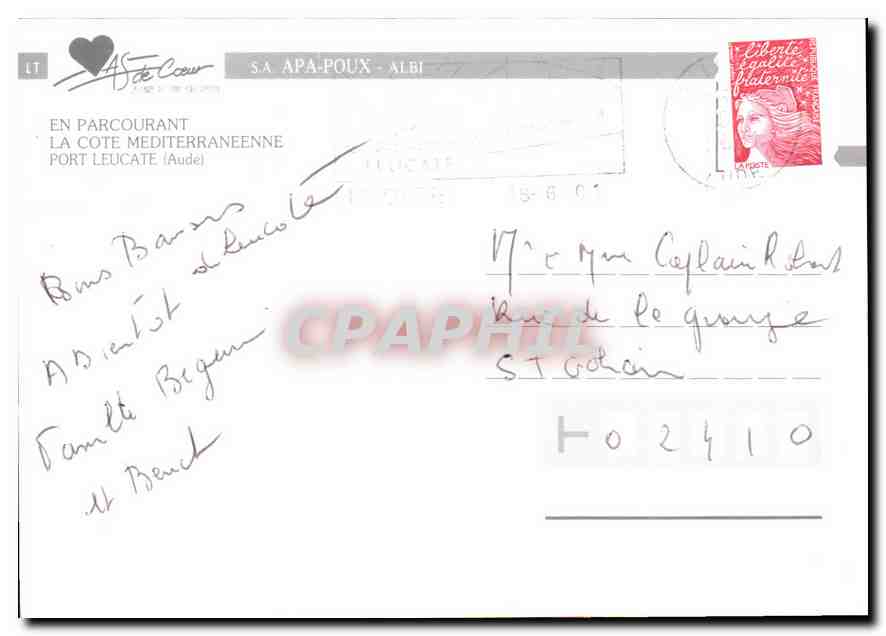 LT
AS de Cœur
S.A. APA-POUX - ALBI
EN PARCOURANT
LA COTE MEDITERRANEENNE
PORT LEUCATE (Aude)
liberté
égalité
fraternité
RÉPUBLIQUE FRANÇAISE
LA POSTE
LEUCATE
AUDE
Bons Baisers
de Leucate
A Bientôt
Famille
et Benoit
Mr e Mme Caplain Robert
Rue de la grange
ST Gobain
02410
CPAPHIL